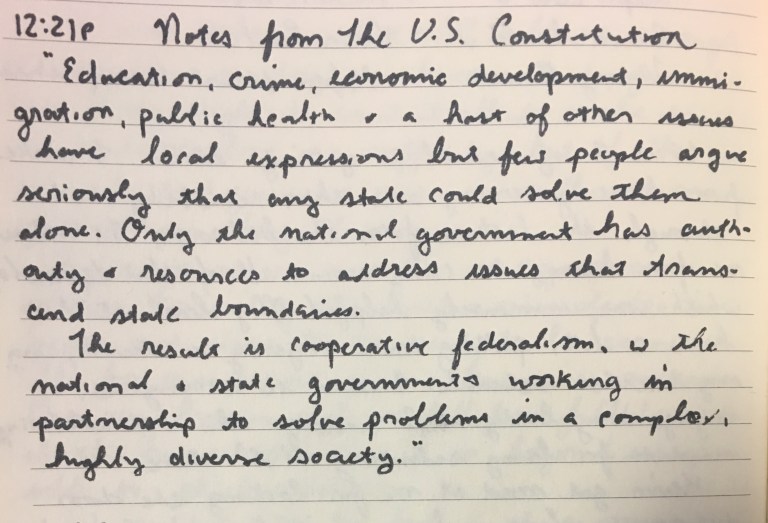 12:21p Notes from the U.S. Constitution
"Education, crime, economic development, immi-
gration, public health & a host of other issues
have local expressions but few people argue
seriously that any state could solve them
alone. Only the national government has auth-
ority & resources to address issues that trans-
cend state boundaries.
The result is cooperative federalism, w the
national & state governments working in
partnership to solve problems in a complex,
highly diverse society."